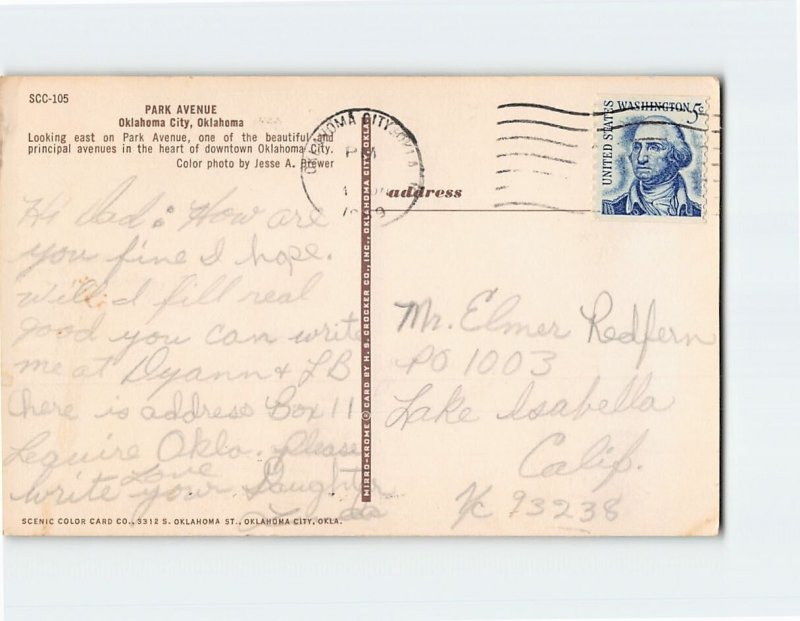 SCC-105
PARK AVENUE
Oklahoma City, Oklahoma
Looking east on Park Avenue, one of the beautiful and
principal avenues in the heart of downtown Oklahoma City.
Color photo by Jesse A. Brewer
Hi Dad: How are
you fine I hope.
will I fill real
good you can write
me at Dyann & LB
here is address Box 11
Lequire Okla. Please
Love
write your Daughter
SCENIC COLOR CARD CO., 3312 S. OKLAHOMA ST., OKLAHOMA CITY, OKLA.
MIRRO-KROME ® CARD BY H. S. CROCKER CO., INC., OKLAHOMA CITY, OKLA.
OKLAHOMA CITY, OKLA
PM
address
UNITED STATES
WASHINGTON 5c
Mr. Elmer Redfern
PO 1003
Lake Isabella
Calif.
93238